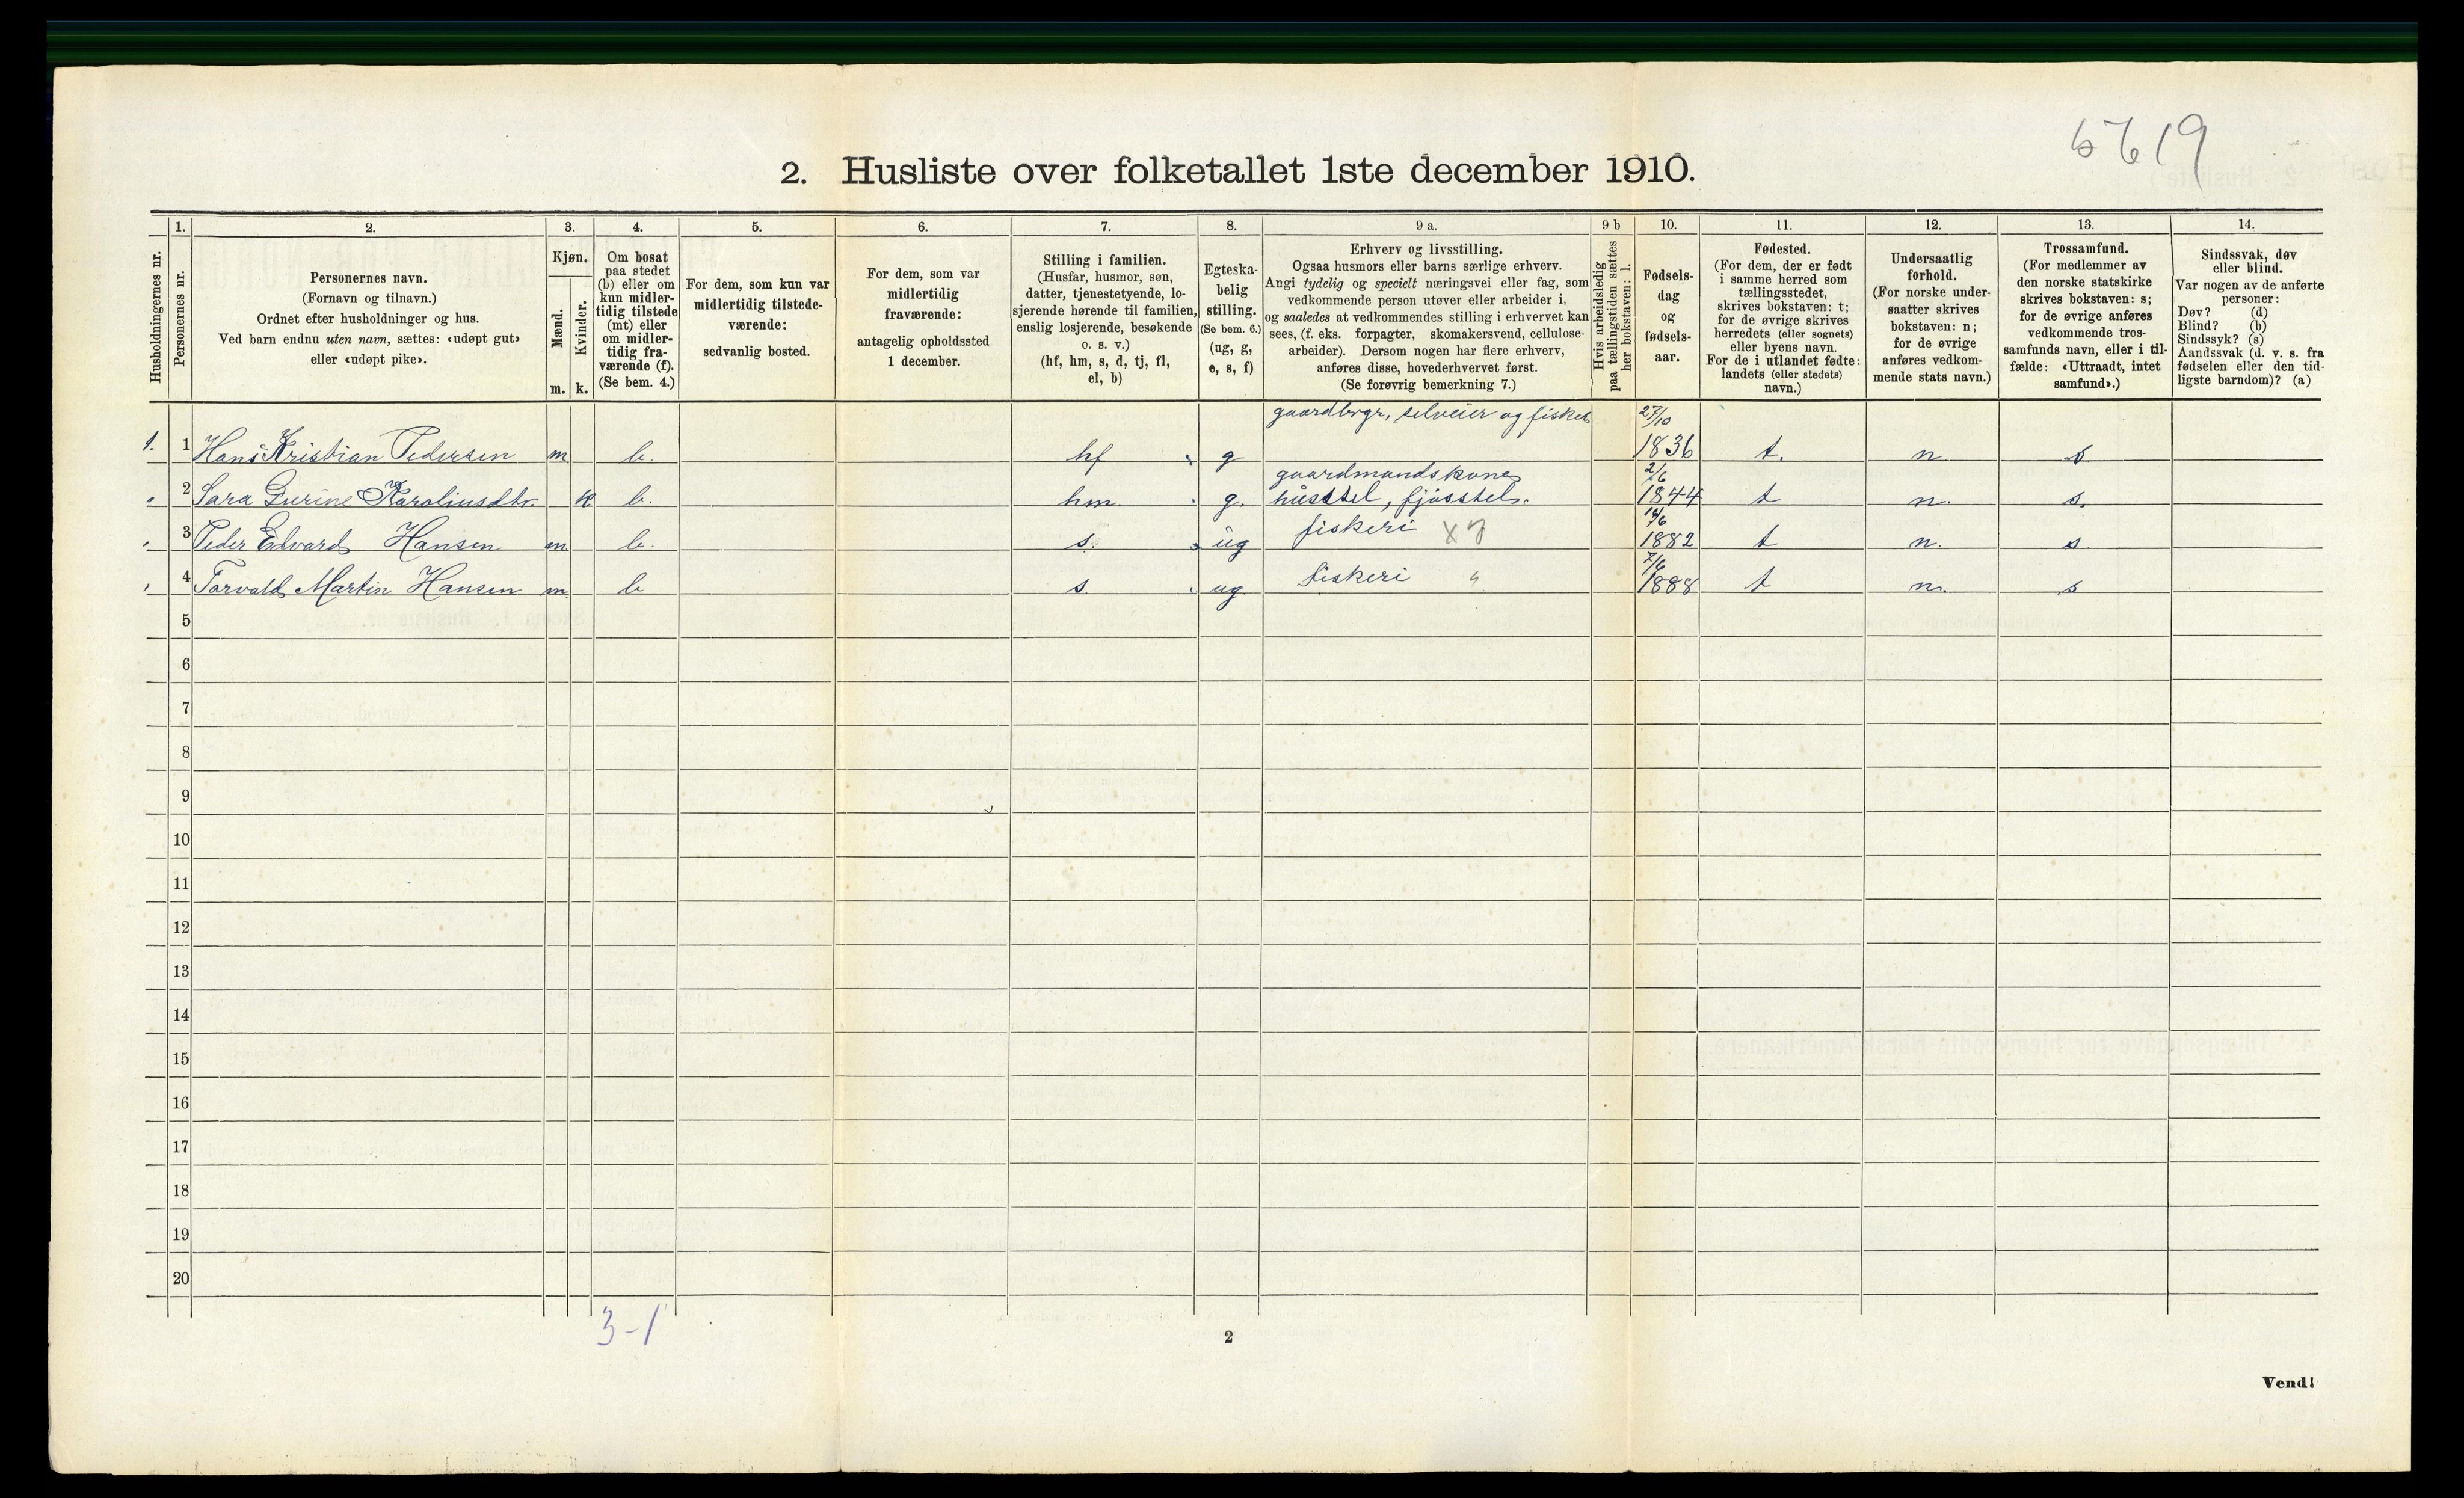 5619
2. Husliste over folketallet 1ste december 1910.
1. 2. 3. 4. 5. 6. 7. 8. 9 a. 9 b 10. 11. 12. 13. 14.
Husholdningernes nr.
Personernes nr.
Personernes navn.
(Fornavn og tilnavn.)
Ordnet efter husholdninger og hus.
Ved barn endnu uten navn, sættes: «udøpt gut»
eller «udøpt pike».
Kjøn.
Mænd.
Kvinder.
m. k.
Om bosat
paa stedet
(b) eller om
kun midler-
tidig tilstede
(mt) eller
om midler-
tidig fra-
værende (f).
(Se bem. 4.)
For dem, som kun var
midlertidig tilstede-
værende:
sedvanlig bosted.
For dem, som var
midlertidig
fraværende:
antagelig opholdssted
1 december.
Stilling i familien.
(Husfar, husmor, søn,
datter, tjenestetyende, lo-
sjerende hørende til familien,
enslig losjerende, besøkende
o. s. v.)
(hf, hm, s, d, tj, fl,
el, b)
Egteska-
belig
stilling.
(Se bem. 6.)
(ug, g,
e, s, f)
Erhverv og livsstilling.
Ogsaa husmors eller barns særlige erhverv.
Angi tydelig og specielt næringsvei eller fag, som
vedkommende person utøver eller arbeider i,
og saaledes at vedkommendes stilling i erhvervet kan
sees, (f. eks. forpagter, skomakersvend, cellulose-
arbeider). Dersom nogen har flere erhverv,
anføres disse, hovederhvervet først.
(Se forøvrig bemerkning 7.)
Hvis arbeidsledig
paa tællingstiden sættes
her bokstaven: l.
Fødsels-
dag
og
fødsels-
aar.
Fødested.
(For dem, der er født
i samme herred som
tællingsstedet,
skrives bokstaven: t;
for de øvrige skrives
herredets (eller sognets)
eller byens navn.
For de i utlandet fødte:
landets (eller stedets)
navn.)
Undersaatlig
forhold.
(For norske under-
saatter skrives
bokstaven: n;
for de øvrige
anføres vedkom-
mende stats navn.)
Trossamfund.
(For medlemmer av
den norske statskirke
skrives bokstaven: s;
for de øvrige anføres
vedkommende tros-
samfunds navn, eller i til-
fælde: «Uttraadt, intet
samfund».)
Sindssvak, døv
eller blind.
Var nogen av de anførte
personer:
Døv? (d)
Blind? (b)
Sindssyk? (s)
Aandssvak (d. v. s. fra
fødselen eller den tid-
ligste barndom)? (a)
gaardbrgr, selveier og fisker 27/10
1. 1 Hans Kristian Pedersen m b. hf g 1836 t. n s
gaardmandskone 2/6
2 Sara Gurine Karoliusdtr. k b. hm. g. husstel, fjøsstel. 1844 t n. s.
3 Peder Edvard Hansen m b. s. ug fiskeri 1882 t n. s
7/6
4 Torvald Martin Hansen m b s. ug. fiskeri 1888 t n. s
5
6
7
8
9
10
11
12
13
14
15
16
17
18
19
20
3-1
2
Vend!